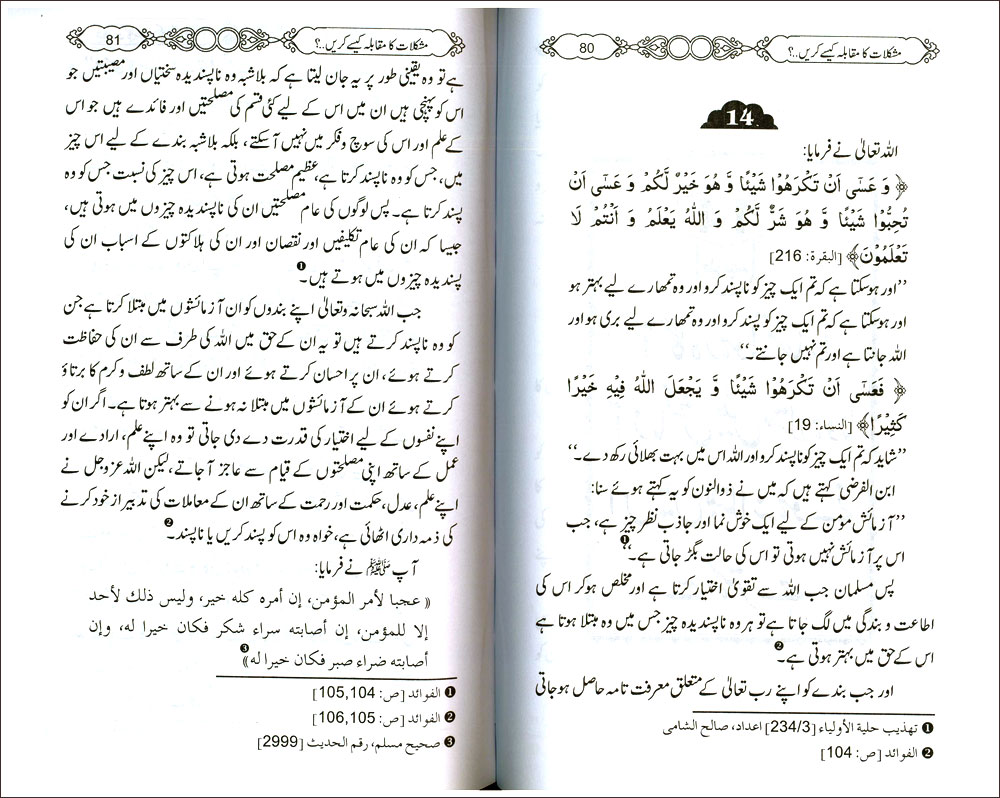 80
مشکلات کا مقابلہ کیسے کریں..؟
14
اللہ تعالیٰ نے فرمایا:
﴿ وَ عَسٰۤى اَنْ تَكْرَهُوْا شَيْـًٔا وَّ هُوَ خَيْرٌ لَّكُمْ وَ عَسٰۤى اَنْ
تُحِبُّوْا شَيْـًٔا وَّ هُوَ شَرٌّ لَّكُمْ وَ اللّٰهُ يَعْلَمُ وَ اَنْتُمْ لَا
تَعْلَمُوْنَ﴾ [البقرة: 216]
’’اور ہو سکتا ہے کہ تم ایک چیز کو ناپسند کرو اور وہ تمھارے لیے بہتر ہو
اور ہو سکتا ہے کہ تم ایک چیز کو پسند کرو اور وہ تمھارے لیے بری ہو اور
اللہ جانتا ہے اور تم نہیں جانتے۔‘‘
﴿ فَعَسٰۤى اَنْ تَكْرَهُوْا شَيْـًٔا وَّ يَجْعَلَ اللّٰهُ فِيْهِ خَيْرًا
كَثِيْرًا﴾ [النساء: 19]
’’شاید کہ تم ایک چیز کو ناپسند کرو اور اللہ اس میں بہت بھلائی رکھ دے۔‘‘
ابن الفرضی کہتے ہیں کہ میں نے ذوالنون کو یہ کہتے ہوئے سنا:
’’آزمائش مؤمن کے لیے ایک خوش نما اور جاذب نظر چیز ہے، جب
اس پر آزمائش نہیں ہوتی تو اس کی حالت بگڑ جاتی ہے۔‘‘❶
پس مسلمان جب اللہ سے تقویٰ اختیار کرتا ہے اور مخلص ہو کر اس کی
اطاعت و بندگی میں لگ جاتا ہے تو ہر وہ ناپسندیدہ چیز جس میں وہ مبتلا ہوتا ہے
اس کے حق میں بہتر ہوتی ہے۔❷
اور جب بندے کو اپنے رب تعالیٰ کے متعلق معرفت تامہ حاصل ہو جاتی
❶ تهذيب حلية الأولياء [234/3] اعداد، صالح الشامی
❷ الفوائد [ص: 104]
81
مشکلات کا مقابلہ کیسے کریں..؟
ہے تو وہ یقینی طور پر یہ جان لیتا ہے کہ بلاشبہ وہ ناپسندیدہ سختیاں اور مصیبتیں جو
اس کو پہنچی ہیں ان میں اس کے لیے کئی قسم کی مصلحتیں اور فائدے ہیں جو اس
کے علم اور اس کی سوچ و فکر میں نہیں آ سکتے، بلکہ بلاشبہ بندے کے لیے اس چیز
میں، جس کو وہ ناپسند کرتا ہے، عظیم مصلحت ہوتی ہے، اس چیز کی نسبت جس کو وہ
پسند کرتا ہے۔ پس لوگوں کی عام مصلحتیں ان کی ناپسندیدہ چیزوں میں ہوتی ہیں،
جیسا کہ ان کی عام تکلیفیں اور نقصان اور ان کی ہلاکتوں کے اسباب ان کی
پسندیدہ چیزوں میں ہوتے ہیں۔❶
جب اللہ سبحانہ وتعالیٰ اپنے بندوں کو ان آزمائشوں میں مبتلا کرتا ہے جن
کو وہ ناپسند کرتے ہیں تو یہ ان کے حق میں اللہ کی طرف سے ان کی حفاظت
کرتے ہوئے، ان پر احسان کرتے ہوئے اور ان کے ساتھ لطف و کرم کا برتاؤ
کرتے ہوئے ان کے آزمائشوں میں مبتلا نہ ہونے سے بہتر ہوتا ہے۔ اگر ان کو
اپنے نفسوں کے لیے اختیار کی قدرت دے دی جاتی تو وہ اپنے علم، ارادے اور
عمل کے ساتھ اپنی مصلحتوں کے قیام سے عاجز آ جاتے، لیکن اللہ عزوجل نے
اپنے علم، عدل، حکمت اور رحمت کے ساتھ ان کے معاملات کی تدبیر از خود کرنے
کی ذمہ داری اٹھائی ہے، خواہ وہ اس کو پسند کریں یا ناپسند۔❷
آپ ﷺ نے فرمایا:
(( عجبا لأمر المؤمن، إن أمره كله خير، وليس ذلك لأحد
إلا للمؤمن، إن أصابته سراء شكر فكان خيرا له، وإن
أصابته ضراء صبر فكان خيرا له))❸
❶ الفوائد [ص: 105,104]
❷ الفوائد [ص: 106,105]
❸ صحيح مسلم، رقم الحديث [2999]